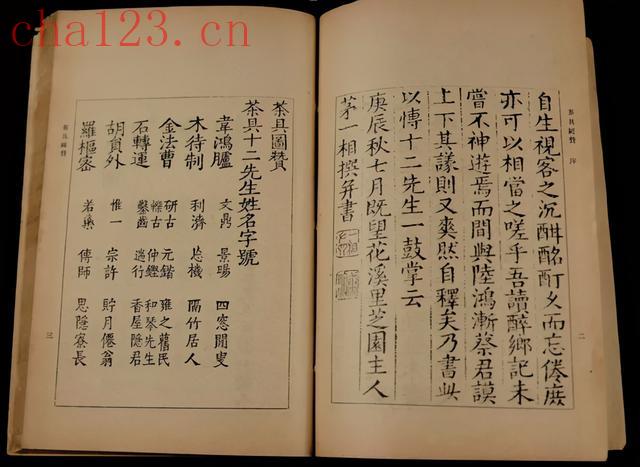 cha123.cn
茶具圖贊 序
二
自生視客之沉酣酩酊久而忘倦庶
亦可以相當之嗟乎吾讀醉鄉記未
嘗不神遊焉而間與陸鴻漸蔡君謨
上下其議則又爽然自釋矣乃書此
以愽十二先生一鼓掌云
庚辰秋七月既望花溪里芝園主人
茅一相撰并書
茶具圖贊
茶具十二先生姓名字號
韋鴻臚 文鼎 景暘 四窓閒叟
木待制 利濟 忘機 隔竹居人
金法曹 研古 轢古 元鍇 仲鏗 雍之舊民 和琴先生
石轉運 鑿齒 遄行 香屋隱君
胡員外 惟一 宗許 貯月僊翁
羅樞密 若藥 傳師 思隱寮長
茶具圖贊
三